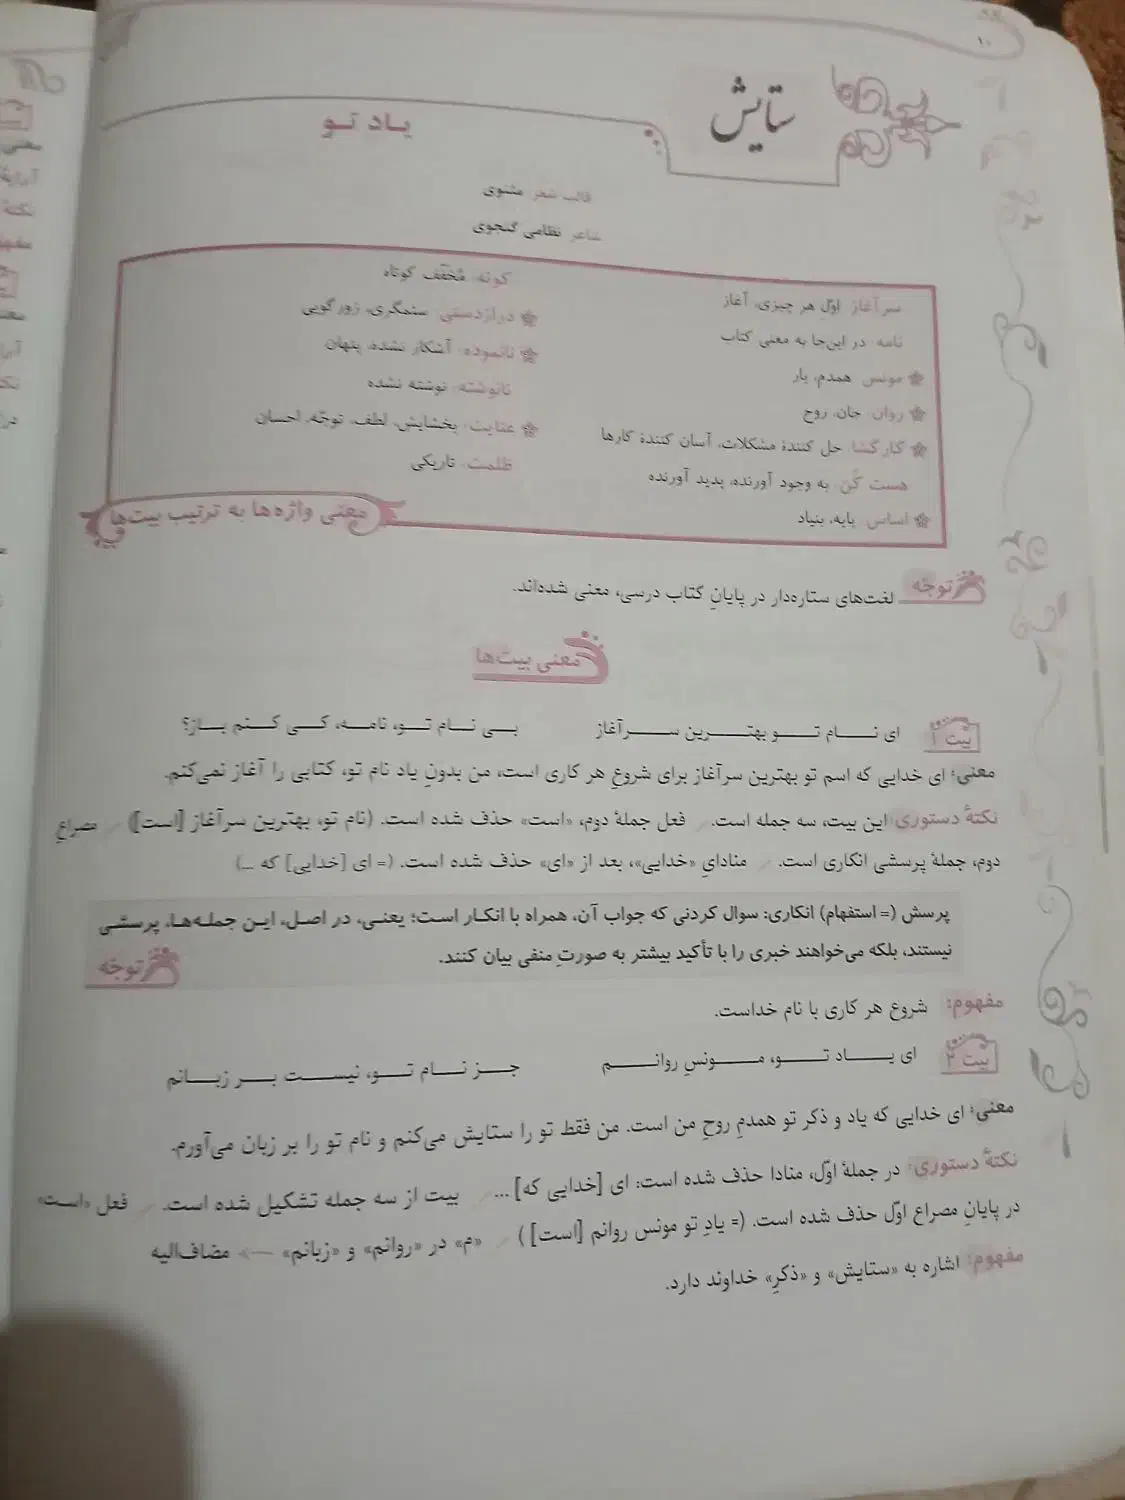 ۱۰
ستایش
یاد تو
قالب شعر مثنوی
شاعر نظامی گنجوی
سرآغاز: اوّل هر چیزی، آغاز
نامه: در این‌جا به معنی کتاب
مونس: همدم، یار
روان: جان، روح
کارگشا: حل کنندهٔ مشکلات، آسان کنندهٔ کارها
هست کُن: به وجود آورنده، پدید آورنده
اساس: پایه، بنیاد
کوته: مُخفّف کوتاه
درازدستی: ستمگری، زورگویی
نانموده: آشکار نشده، پنهان
نانوشته: نوشته نشده
عنایت: بخشایش، لطف، توجّه، احسان
ظلمت: تاریکی
معنی واژه‌ها به ترتیب بیت‌ها
توجّه لغت‌های ستاره‌دار در پایانِ کتاب درسی، معنی شده‌اند.
معنی بیت‌ها
بیت ۱ ای نام تو بهترین سرآغاز بی نام تو، نامه، کی کنم باز؟
معنی: ای خدایی که اسم تو بهترین سرآغاز برای شروعِ هر کاری است، من بدونِ یاد نام تو، کتابی را آغاز نمی‌کنم.
نکتهٔ دستوری: این بیت، سه جمله است. / فعل جملهٔ دوم، «است» حذف شده است. (نام تو، بهترین سرآغاز [است]) / مصراعِ
دوم، جملهٔ پرسشی انکاری است. / منادایِ «خدایی»، بعد از «ای» حذف شده است. (= ای [خدایی] که ...)
پرسش (= استفهام) انکاری: سوال کردنی که جواب آن، همراه با انکار است؛ یعنی، در اصل، این جمله‌ها، پرسشی
نیستند، بلکه می‌خواهند خبری را با تأکید بیشتر به صورتِ منفی بیان کنند.
توجّه
مفهوم: شروع هر کاری با نام خداست.
بیت ۲ ای یاد تو، مونسِ روانم جز نام تو، نیست بر زبانم
معنی: ای خدایی که یاد و ذکر تو همدمِ روحِ من است. من فقط تو را ستایش می‌کنم و نام تو را بر زبان می‌آورم.
نکتهٔ دستوری: در جملهٔ اوّل، منادا حذف شده است: ای [خدایی که] ... / بیت از سه جمله تشکیل شده است. / فعل «است»
در پایانِ مصراع اوّل حذف شده است. (= یادِ تو مونس روانم [است]) / «م» در «روانم» و «زبانم» ← مضاف‌الیه
مفهوم: اشاره به «ستایش» و «ذکرِ» خداوند دارد.